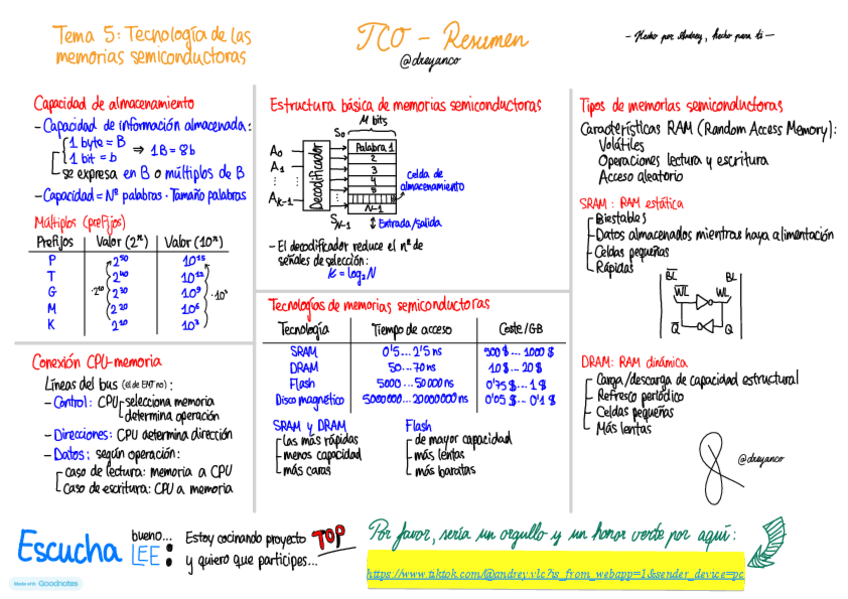 Tema 5: Tecnología de las
memorias semiconductoras
TCO - Resumen
@dreyanco
- Hecho por Andrey, hecho para ti -
Capacidad de almacenamiento
- Capacidad de información almacenada:
1 byte = B
1 bit = b
⇒ 1B = 8b
se expresa en B o múltiplos de B
- Capacidad = Nº palabras · Tamaño palabras
Múltiplos (prefijos)
Prefijos Valor (2ⁿ) Valor (10ⁿ)
P 2⁵⁰ 10¹⁵
T 2⁴⁰ 10¹²
G 2³⁰ 10⁹
M 2²⁰ 10⁶
K 2¹⁰ 10³
·2¹⁰ ·10³
Conexión CPU-memoria
Líneas del bus (el de ENT no):
- Control: CPU selecciona memoria
determina operación
- Direcciones: CPU determina dirección
- Datos: según operación:
caso de lectura: memoria a CPU
caso de escritura: CPU a memoria
Estructura básica de memorias semiconductoras
M bits
S₀
A₀
A₁
Aₖ₋₁
Decodificador
Palabra 1
2
3
4
5
N-1
Sₙ₋₁
Celda de
almacenamiento
Entrada/salida
- El decodificador reduce el nº de
señales de selección:
K = log₂N
Tecnologías de memorias semiconductoras
Tecnología Tiempo de acceso Coste/GB
SRAM 0'5...2'5 ns 500$... 1000$
DRAM 50...70 ns 10$... 20$
Flash 5000...50000 ns 0'75$... 1$
Disco magnético 5000000...20000000 ns 0'05$... 0'1$
SRAM y DRAM
las más rápidas
menos capacidad
más caras
Flash
de mayor capacidad
más lentas
más baratas
Tipos de memorias semiconductoras
Características RAM (Random Access Memory):
Volátiles
Operaciones lectura y escritura
Acceso aleatorio
SRAM: RAM estática
Biestables
Datos almacenados mientras haya alimentación
Celdas pequeñas
Rápidas
BL BL
WL WL
Q Q
DRAM: RAM dinámica
Carga/descarga de capacidad estructural
Refresco periódico
Celdas pequeñas
Más lentas
@dreyanco
Escucha
bueno...
LEE:
Estoy cocinando proyecto TOP
y quiero que participes...
Por favor, sería un orgullo y un honor verte por aquí:
https://www.tiktok.com/@andrey.vlc?is_from_webapp=1&sender_device=pc
Made with Goodnotes